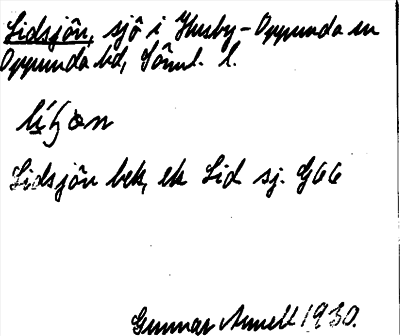 Lidsjön, sjö i Husby-Oppunda sn
Oppunda hd, Söml. l.
Lidsjön bek, ek Lid sj. G66
Gunnar Annell 1930.